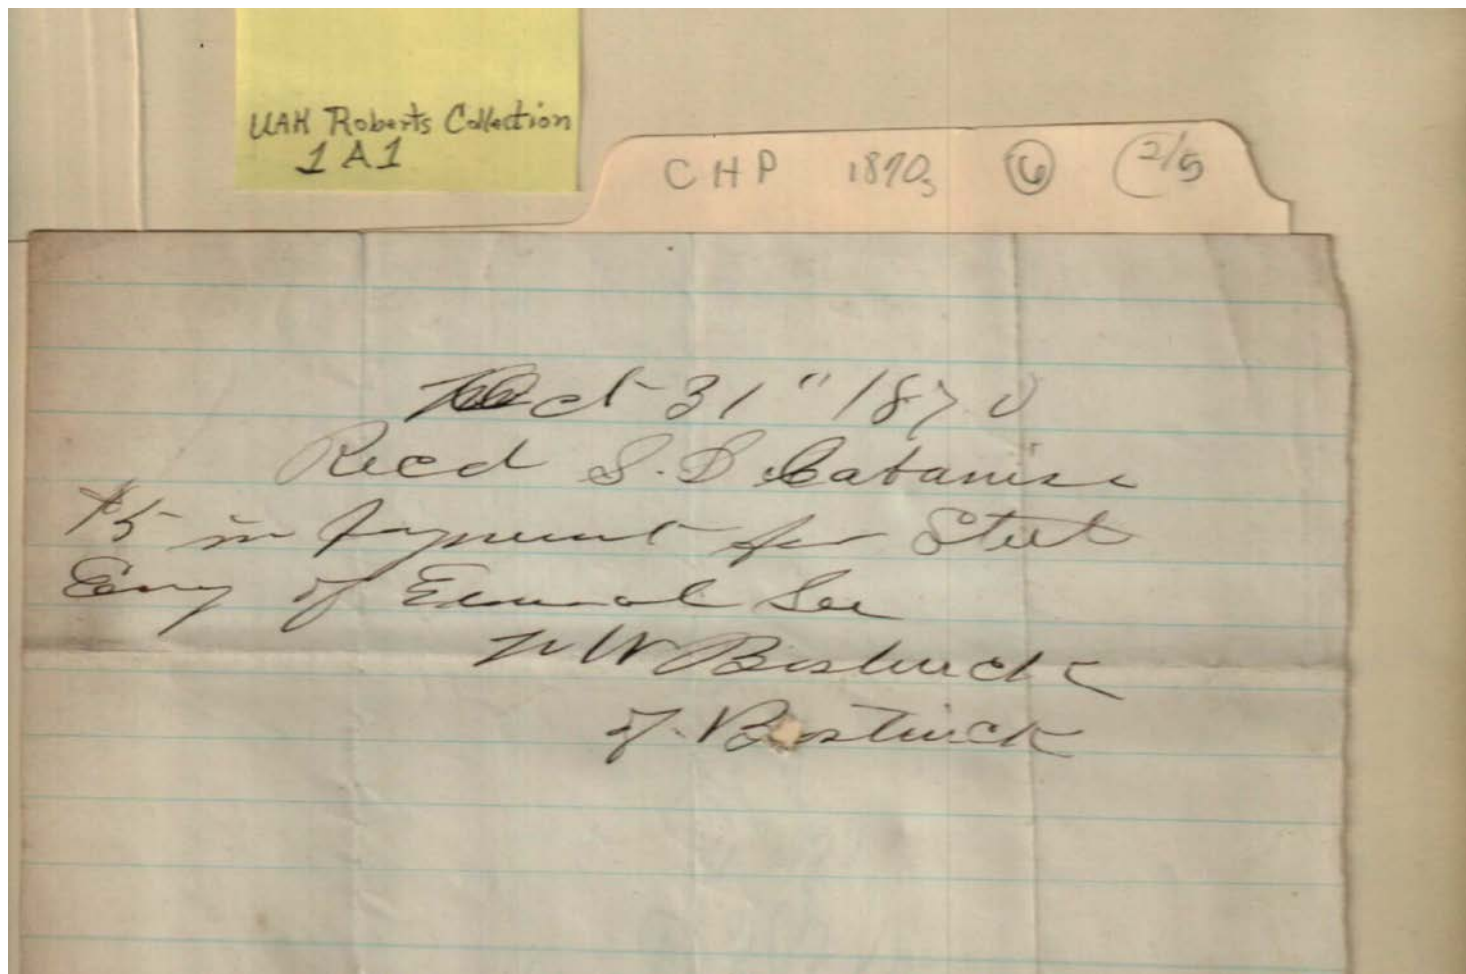 UAH Roberts Collection
1 A 1
CHP 1870s 6 2/5
Oct 31" 1870
Recd S. D. Cabaniss
$5 in payment for Steel
Eng of Lee
N W Bostwick
of Bostwick